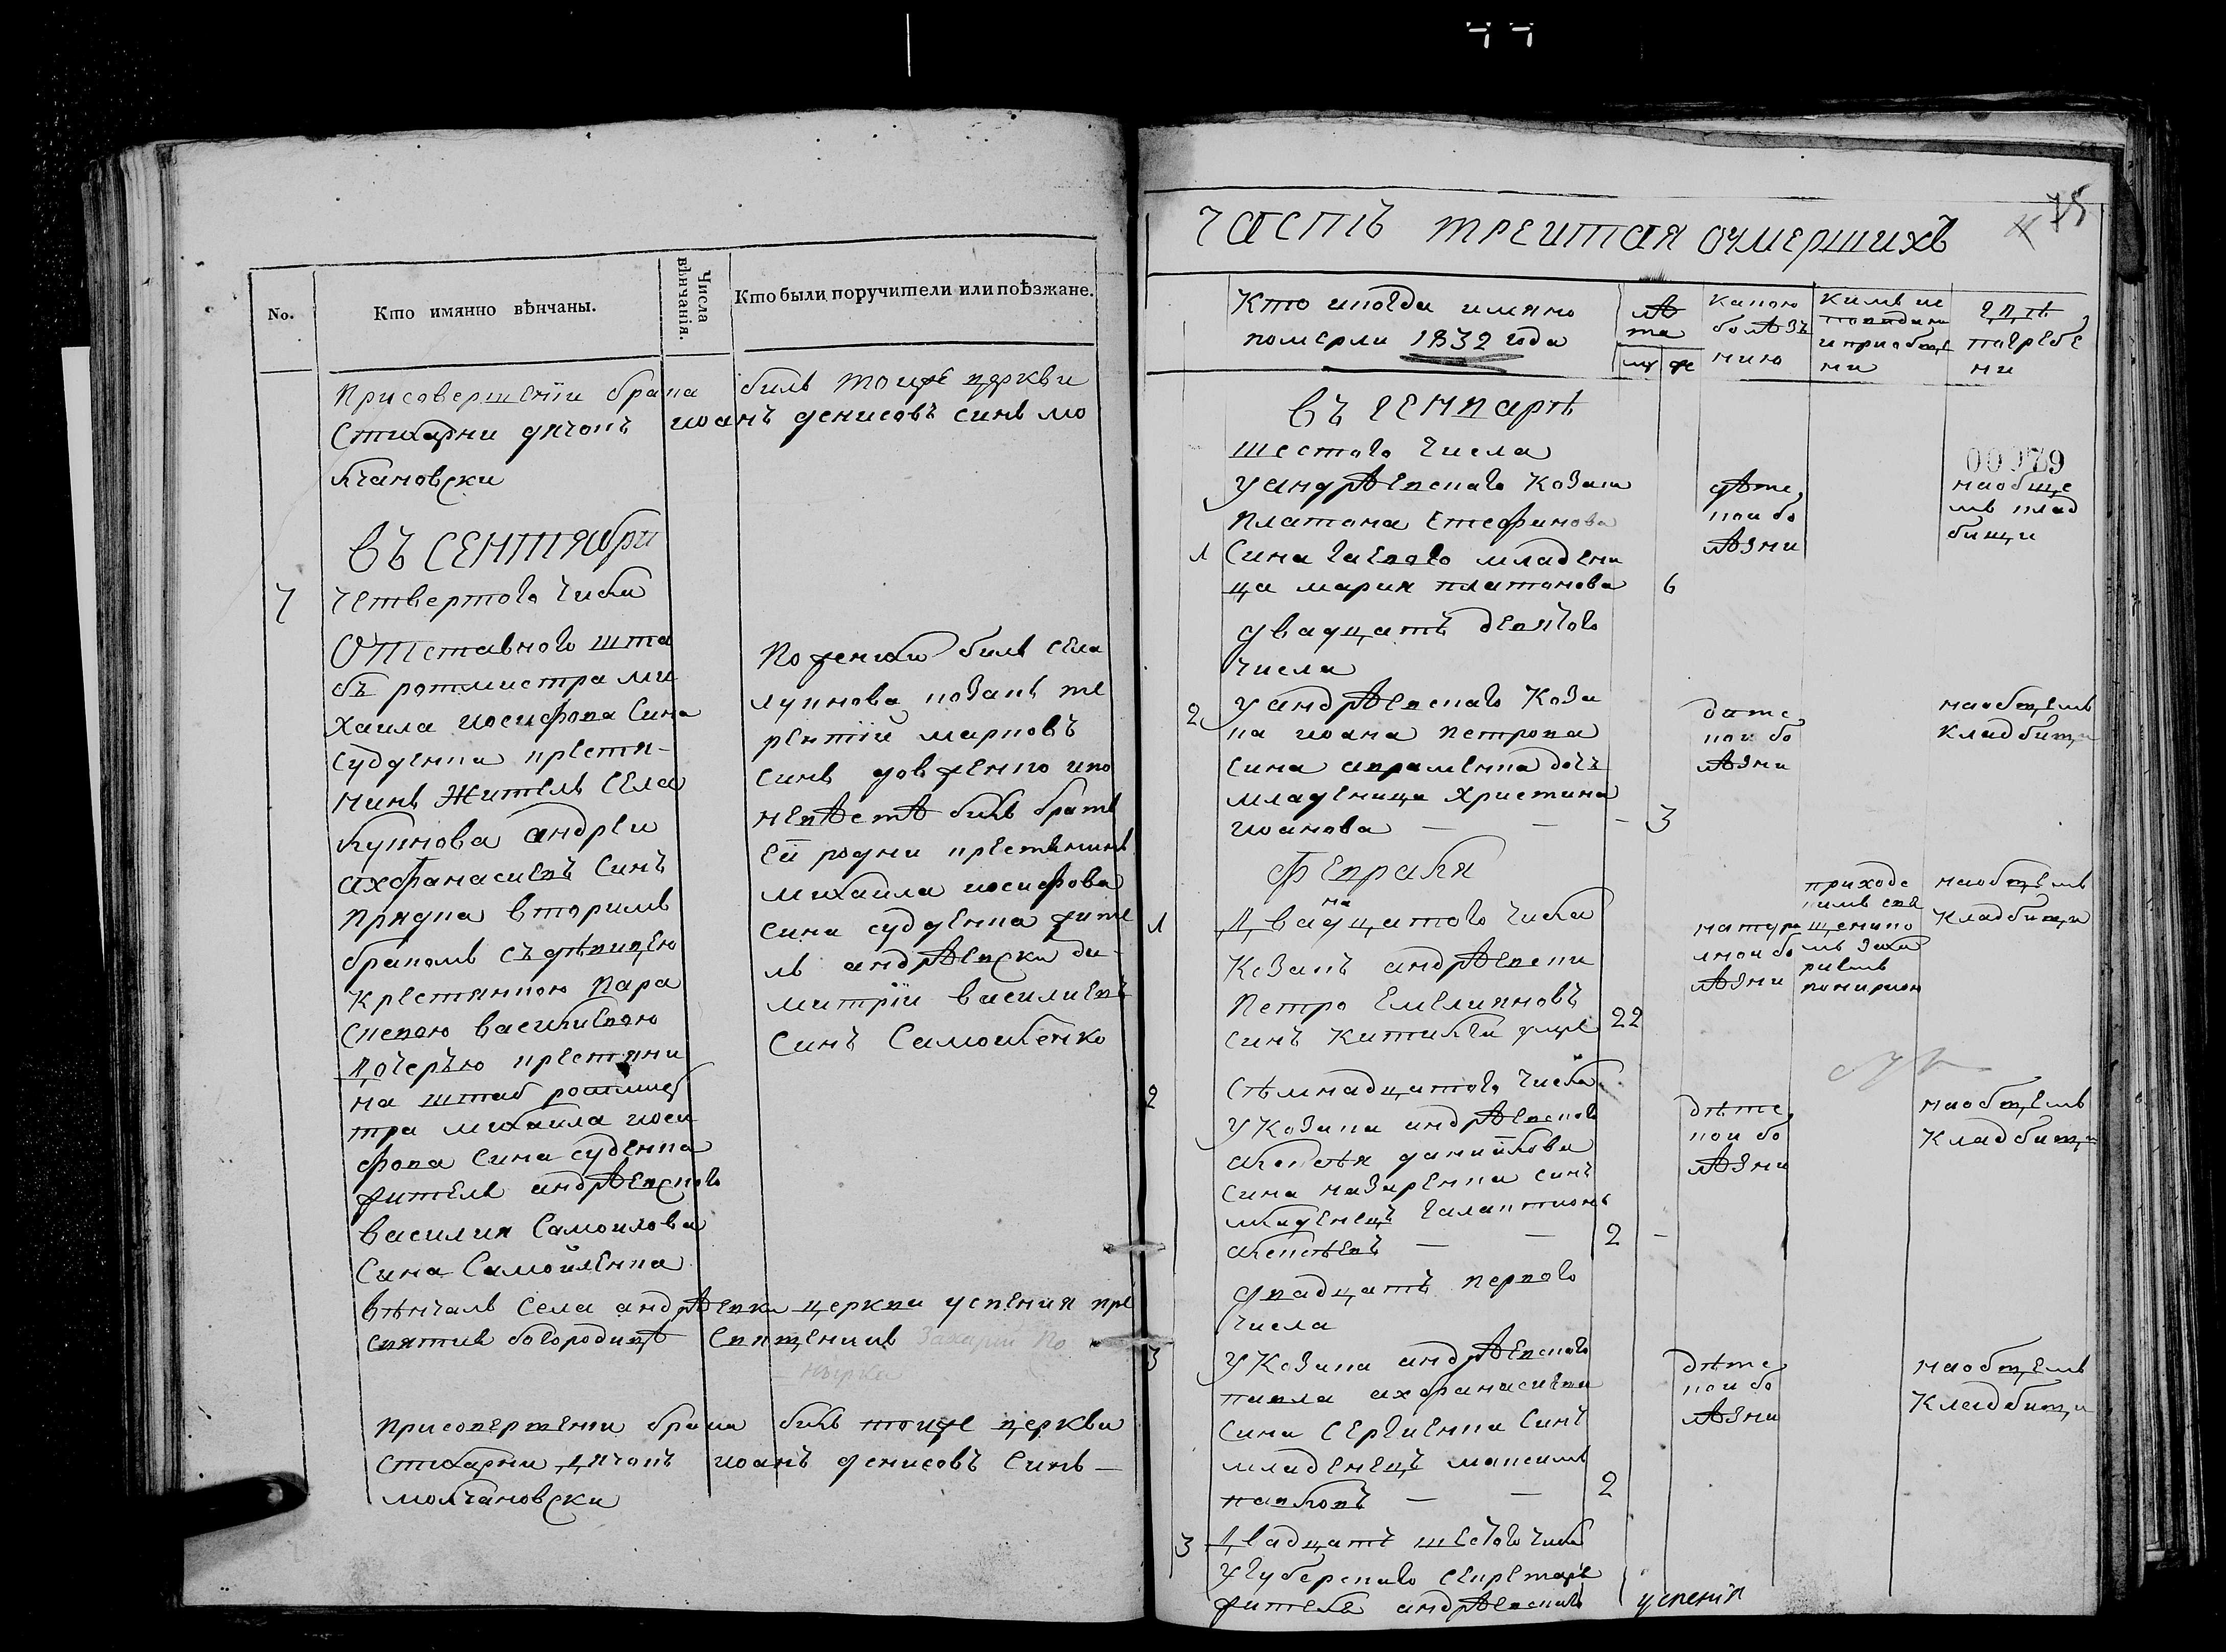 No.
Кто имянно вѣнчаны.
Числа вѣнчанія.
Кто были поручители или поѣзжане.
Присовершеніи брака билъ тоиже церкви
Стихарни дячокъ иоанъ денисовъ синъ мо
лчановски
въ сентябри
7 четвертого числа
Отставного шта
бъ ротмистра ми
хаила иосифова сина
судденка крестя-
нинъ житель села
лукнова андреи
ахфанасиевъ синъ
прядка вторимъ
бракомъ съ дѣвицею
крестянкою пара
скевою василиевою
дочерью крестяни
на штаб ротмис
тра михаила иоси
фова сина суденка
жителя андрѣевского
василия самоилова
сина самойленка
По женихи билъ села
лукнова козакъ те
рентіи марковъ
синъ довженко и по
невѣстѣ билъ братъ
ей родни крестянинъ
михаила иосифова
сина судденка жите
ль андрѣевски ди-
митріи василиевъ
синъ Самоиленко
вѣнчалъ села андрѣевки церкви успения пре
святия богородици священикъ Захарий По
нырка
присовершени брака билъ тоиже церкви
стихарни дячокъ иоанъ денисовъ синъ —
молчановски
часть трейтая оумершихъ
75
Кто икогда имяно
померли 1832 года
лѣ
та
му же
какою
болѣзъ
нию
кимъ ис
поведани
и приобще
ни
гдѣ
погребе
ни
въ генварѣ
шестого числа
00079
1 У андрѣевского козака
платона стефинова
сина гаевого младени
ца мария платонова 6
дѣтс
кои бо
лѣзни
на обще
мъ клад
бищи
двадцать девятого
числа
2 У андрѣевского коза
ка иоана петрова
сина авраменка дочъ
младеница христина
иоанова — — - 3
дѣтс
кои бо
лѣзни
на общемъ
кладбищи
Февраля
1 Двана́дцатого числа
козакъ андрѣевски
петро емелияновъ
синъ 22
натура
лнои бо
лѣзни
приходс
кимъ свя
щенико
мъ заха
риемъ
пониркою
на общемъ
кладбищи
2 сѣмнадцатого числа
У козака андрѣевского
алексѣя даниилова
сина назаренка синъ
младенецъ галактионъ
алексѣевъ — — 2 -
дѣтс
кои бо
лѣзни
на общемъ
кладбищи
двадцать первого
числа
3 У козака андрѣевского
павла ахфанасиева
сина сергиенка синъ
младенецъ максимъ
павловъ — — 2
дѣтс
кои бо
лѣзни
на общемъ
кладбищи
3 двадцать шестого числа
У губерского секретаря
жителя андрѣевского успенія